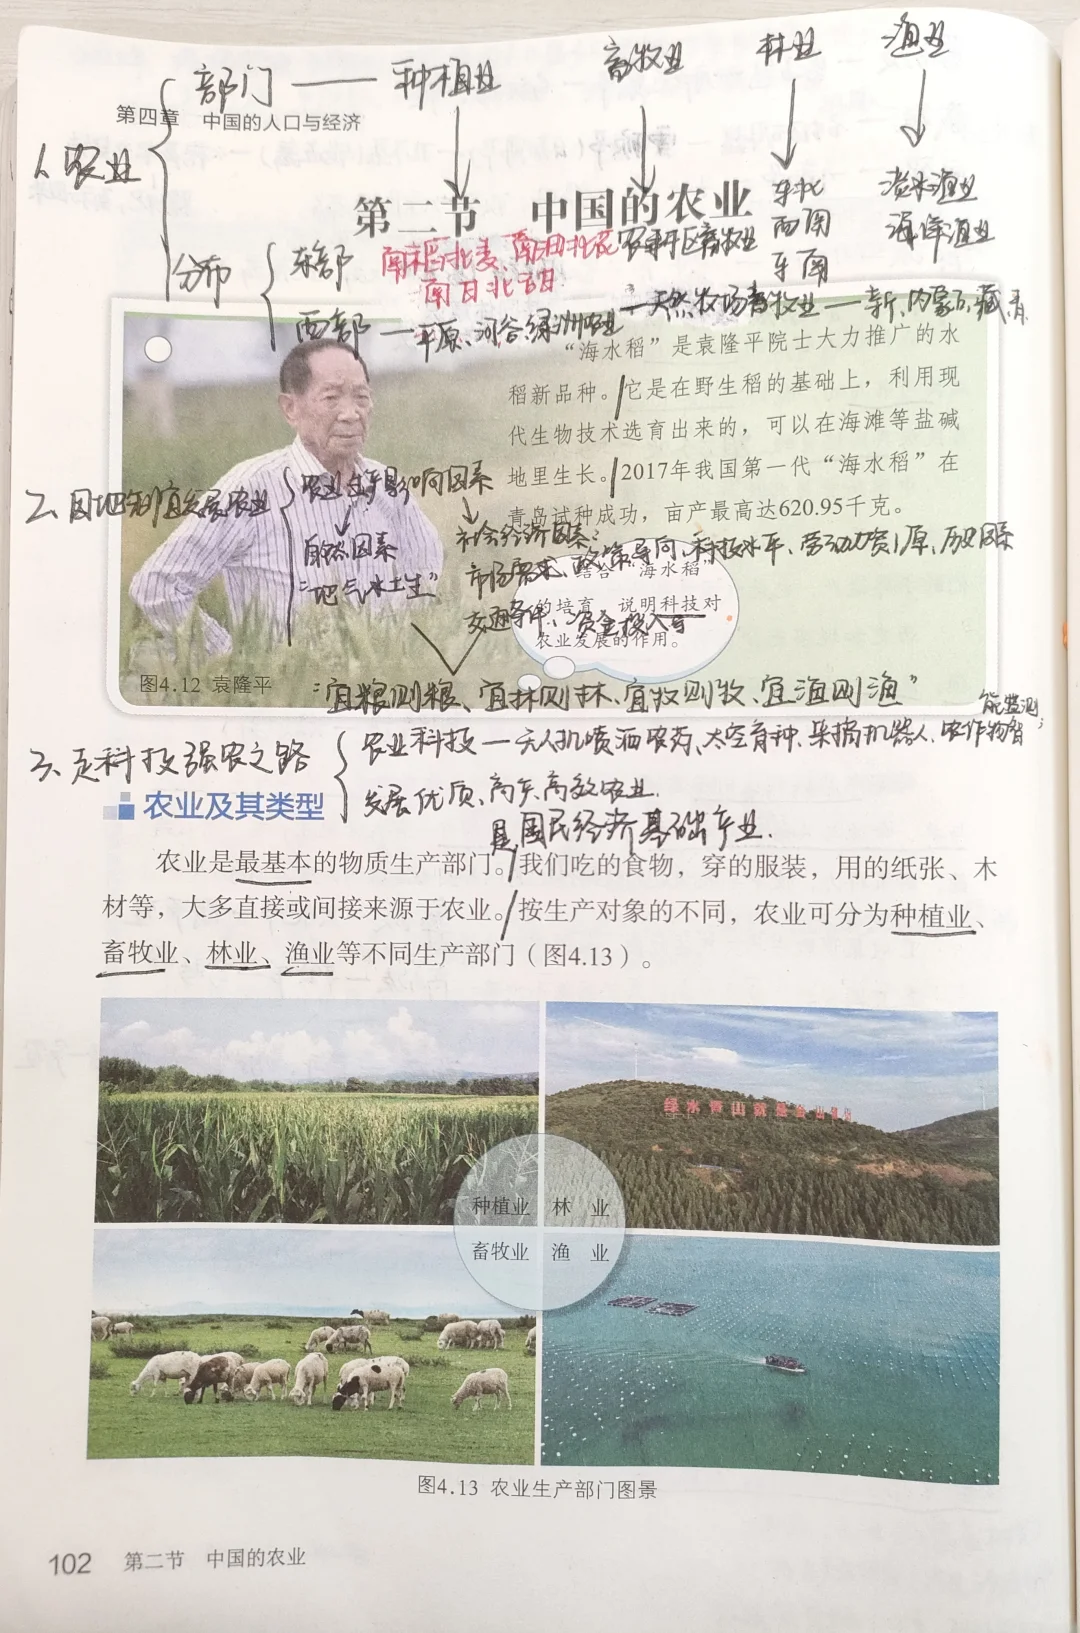 部门 —— 种植业 畜牧业 林业 渔业
第四章 中国的人口与经济
1、农业
第二节 中国的农业
东北
西南
东南
淡水渔业
海洋渔业
分布
东部 南稻北麦 南油北花 农耕区畜牧业
南甘北甜
西部 — 平原、河谷、绿洲农业 — 天然牧场畜牧业 — 新、内蒙古、藏、青
“海水稻”是袁隆平院士大力推广的水
稻新品种。它是在野生稻的基础上，利用现
代生物技术选育出来的，可以在海滩等盐碱
地里生长。2017年我国第一代“海水稻”在
青岛试种成功，亩产最高达620.95千克。
2、因地制宜发展农业
农业生产影响因素
自然因素
“地气水土生”
社会经济因素:
市场需求、政策导向、科技水平、劳动力资源、历史因素
交通条件、资金投入等
结合“海水稻”
的培育，说明科技对
农业发展的作用。
图4.12 袁隆平
“宜粮则粮、宜林则林、宜牧则牧、宜渔则渔”
3、走科技强农之路
农业科技 — 无人机喷洒农药、太空育种、采摘机器人、农作物智
能监测;
发展优质、高产、高效农业.
农业及其类型
是国民经济基础产业.
农业是最基本的物质生产部门。我们吃的食物，穿的服装，用的纸张、木
材等，大多直接或间接来源于农业。按生产对象的不同，农业可分为种植业、
畜牧业、林业、渔业等不同生产部门（图4.13）。
绿水青山就是金山银山
种植业 林 业
畜牧业 渔 业
图4.13 农业生产部门图景
102 第二节 中国的农业